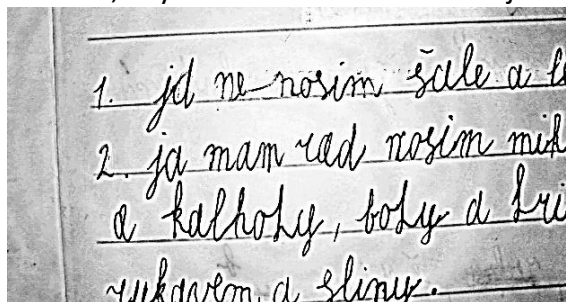 1. já ne nosim šále a
2. ja mam rad nosim mik
a kalhoty, boty a tri
rukavem, a sliny.